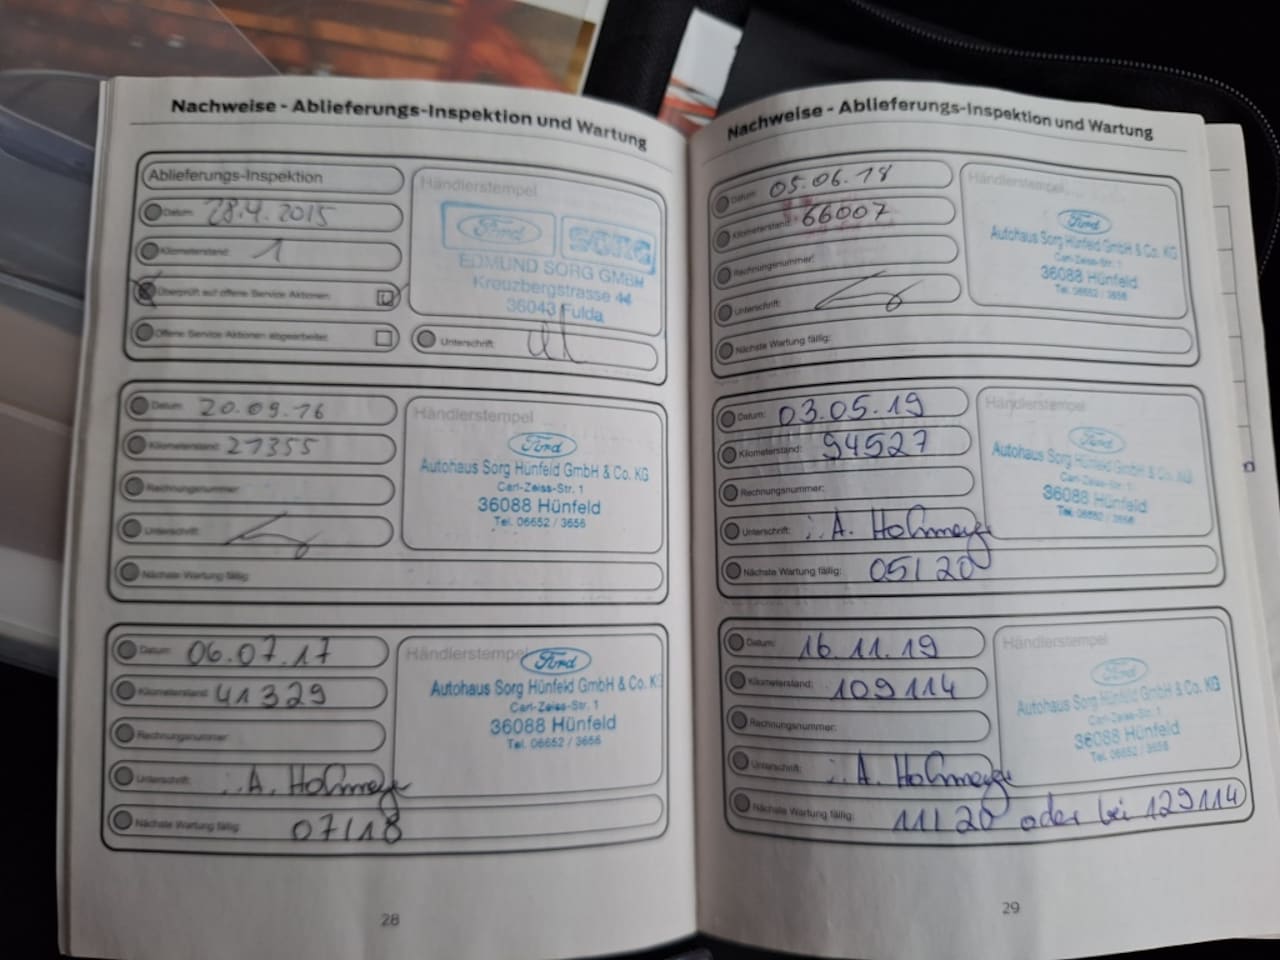 Nachweise - Ablieferungs-Inspektion und Wartung
Ablieferungs-Inspektion
Datum: 28.4.2015
Kilometerstand: 1
Überprüft auf offene Service Aktionen
Offene Service Aktionen abgearbeitet
Händlerstempel
Ford SORG
EDMUND SORG GMBH
Kreuzbergstrasse 44
36043 Fulda
Unterschrift:
Datum: 20.09.16
Kilometerstand: 21355
Rechnungsnummer:
Unterschrift:
Nächste Wartung fällig:
Händlerstempel
Ford
Autohaus Sorg Hünfeld GmbH & Co. KG
Carl-Zeiss-Str. 1
36088 Hünfeld
Tel. 06652 / 3656
Datum: 06.07.17
Kilometerstand: 41329
Rechnungsnummer:
Unterschrift: i.A. Hofmeyer
Nächste Wartung fällig: 07/18
Händlerstempel
Ford
Autohaus Sorg Hünfeld GmbH & Co. K
Carl-Zeiss-Str. 1
36088 Hünfeld
Tel. 06652 / 3656
28
Nachweise - Ablieferungs-Inspektion und Wartung
Datum: 05.06.18
Kilometerstand: 66007
Rechnungsnummer:
Unterschrift:
Nächste Wartung fällig:
Händlerstempel
Ford
Autohaus Sorg Hünfeld GmbH & Co. KG
Carl-Zeiss-Str. 1
36088 Hünfeld
Tel. 06652 / 3656
Datum: 03.05.19
Kilometerstand: 94527
Rechnungsnummer:
Unterschrift: i.A. Hofmeyer
Nächste Wartung fällig: 05/20
Händlerstempel
Ford
Autohaus Sorg Hünfeld GmbH & Co. KG
Carl-Zeiss-Str. 1
36088 Hünfeld
Tel. 06652 / 3656
Datum: 16.11.19
Kilometerstand: 109114
Rechnungsnummer:
Unterschrift: i.A. Hofmeyer
Nächste Wartung fällig: 11/20 oder bei 129114
Händlerstempel
Ford
Autohaus Sorg Hünfeld GmbH & Co. KG
Carl-Zeiss-Str. 1
36088 Hünfeld
Tel. 06652 / 3656
29